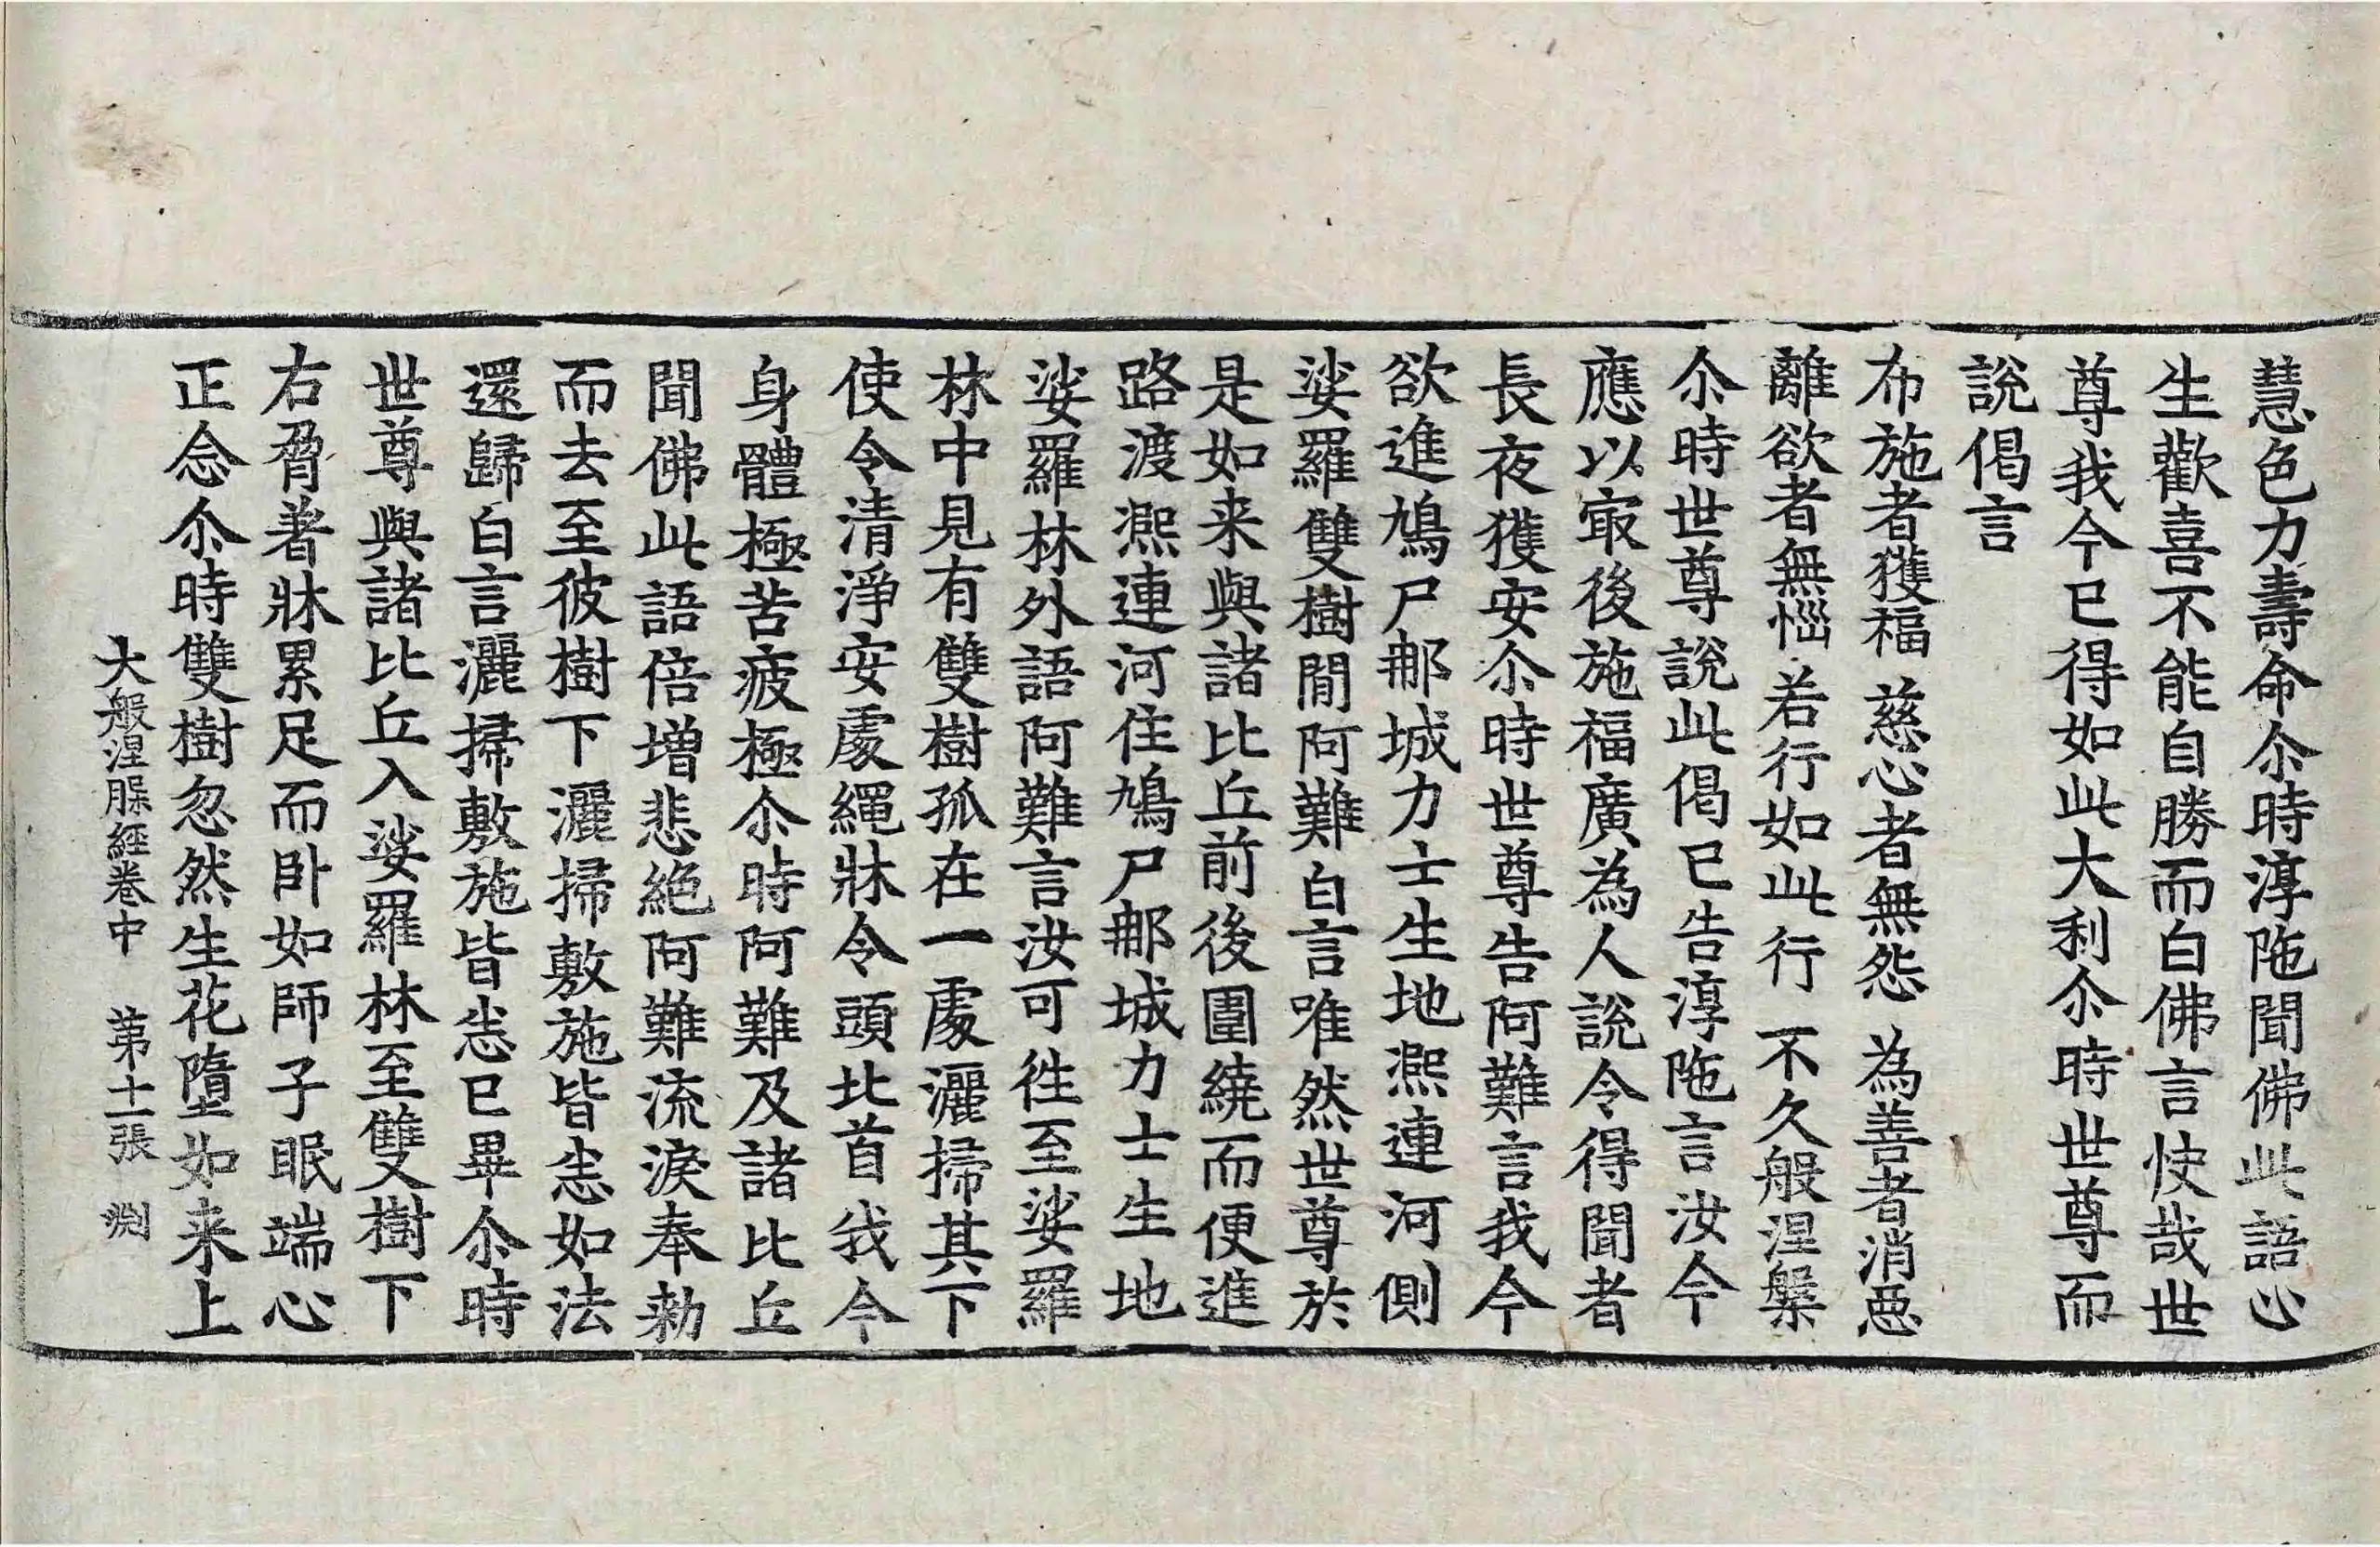 慧色力壽命尒時淳陁聞佛此語心
生歡喜不能自勝而白佛言快哉世
尊我今已得如此大利尒時世尊而
說偈言
布施者獲福 慈心者無怨 為善者消惡
離欲者無惱 若行如此行 不久般涅槃
尒時世尊說此偈已告淳陁言汝今
應以冣後施福廣為人說令得聞者
長夜獲安尒時世尊告阿難言我今
欲進鳩尸那城力士生地熈連河側
娑羅雙樹閒阿難白言唯然世尊於
是如来與諸比丘前後圍繞而便進
路渡熈連河住鳩尸那城力士生地
娑羅林外語阿難言汝可徃至娑羅
林中見有雙樹孤在一處灑掃其下
使令清淨安處繩牀令頭北首我今
身體極苦疲極尒時阿難及諸比丘
聞佛此語倍增悲絶阿難流淚奉勑
而去至彼樹下灑掃敷施皆悉如法
還歸白言灑掃敷施皆悉已畢尒時
世尊與諸比丘入娑羅林至雙樹下
右脅著牀累足而卧如師子眠端心
正念尒時雙樹忽然生花墮如来上
大般涅槃經卷中 第十一張 淵